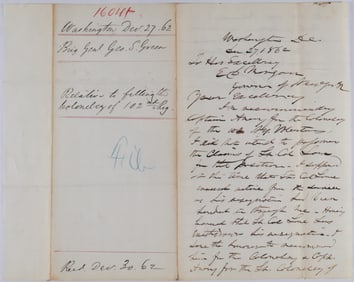 Washington Dec 27. 62
Brig Genl Geo. S. Green
Relative to filling the
Colonelcy of 102nd Reg.
File
Recd. Dec. 30. 62
Washington D.C.
Dec 27 1862
To His Excellency
E. D. Morgan
Governor of New York
Your Excellency
In recommending
Captain Avery for the Colonelcy
of the 102 Regt
I did not intend to
the Claims of Lt. Col Lane
in that position. I supposed
at the time that Lt. Col Lane
would retire from the service
as his resignation had been
handed in through me. Having
learned that Lt Col Lane has
withdrawn his resignation. I
have the honor to recommend
him for the Colonelcy & Capt.
Avery for the Lt. Colonelcy of